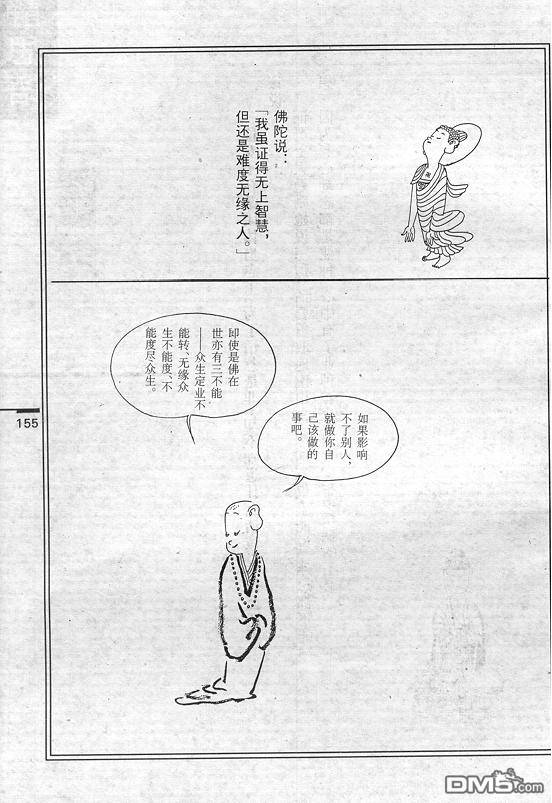 佛陀说：
「我虽证得无上智慧，
但还是难度无缘之人。」
即使是佛在
世亦有三不能
——众生定业不
能转、无缘众
生不能度、不
能度尽众生。
如果影响
不了别人，
就做你自
己该做的
事吧。
155
DM5.com